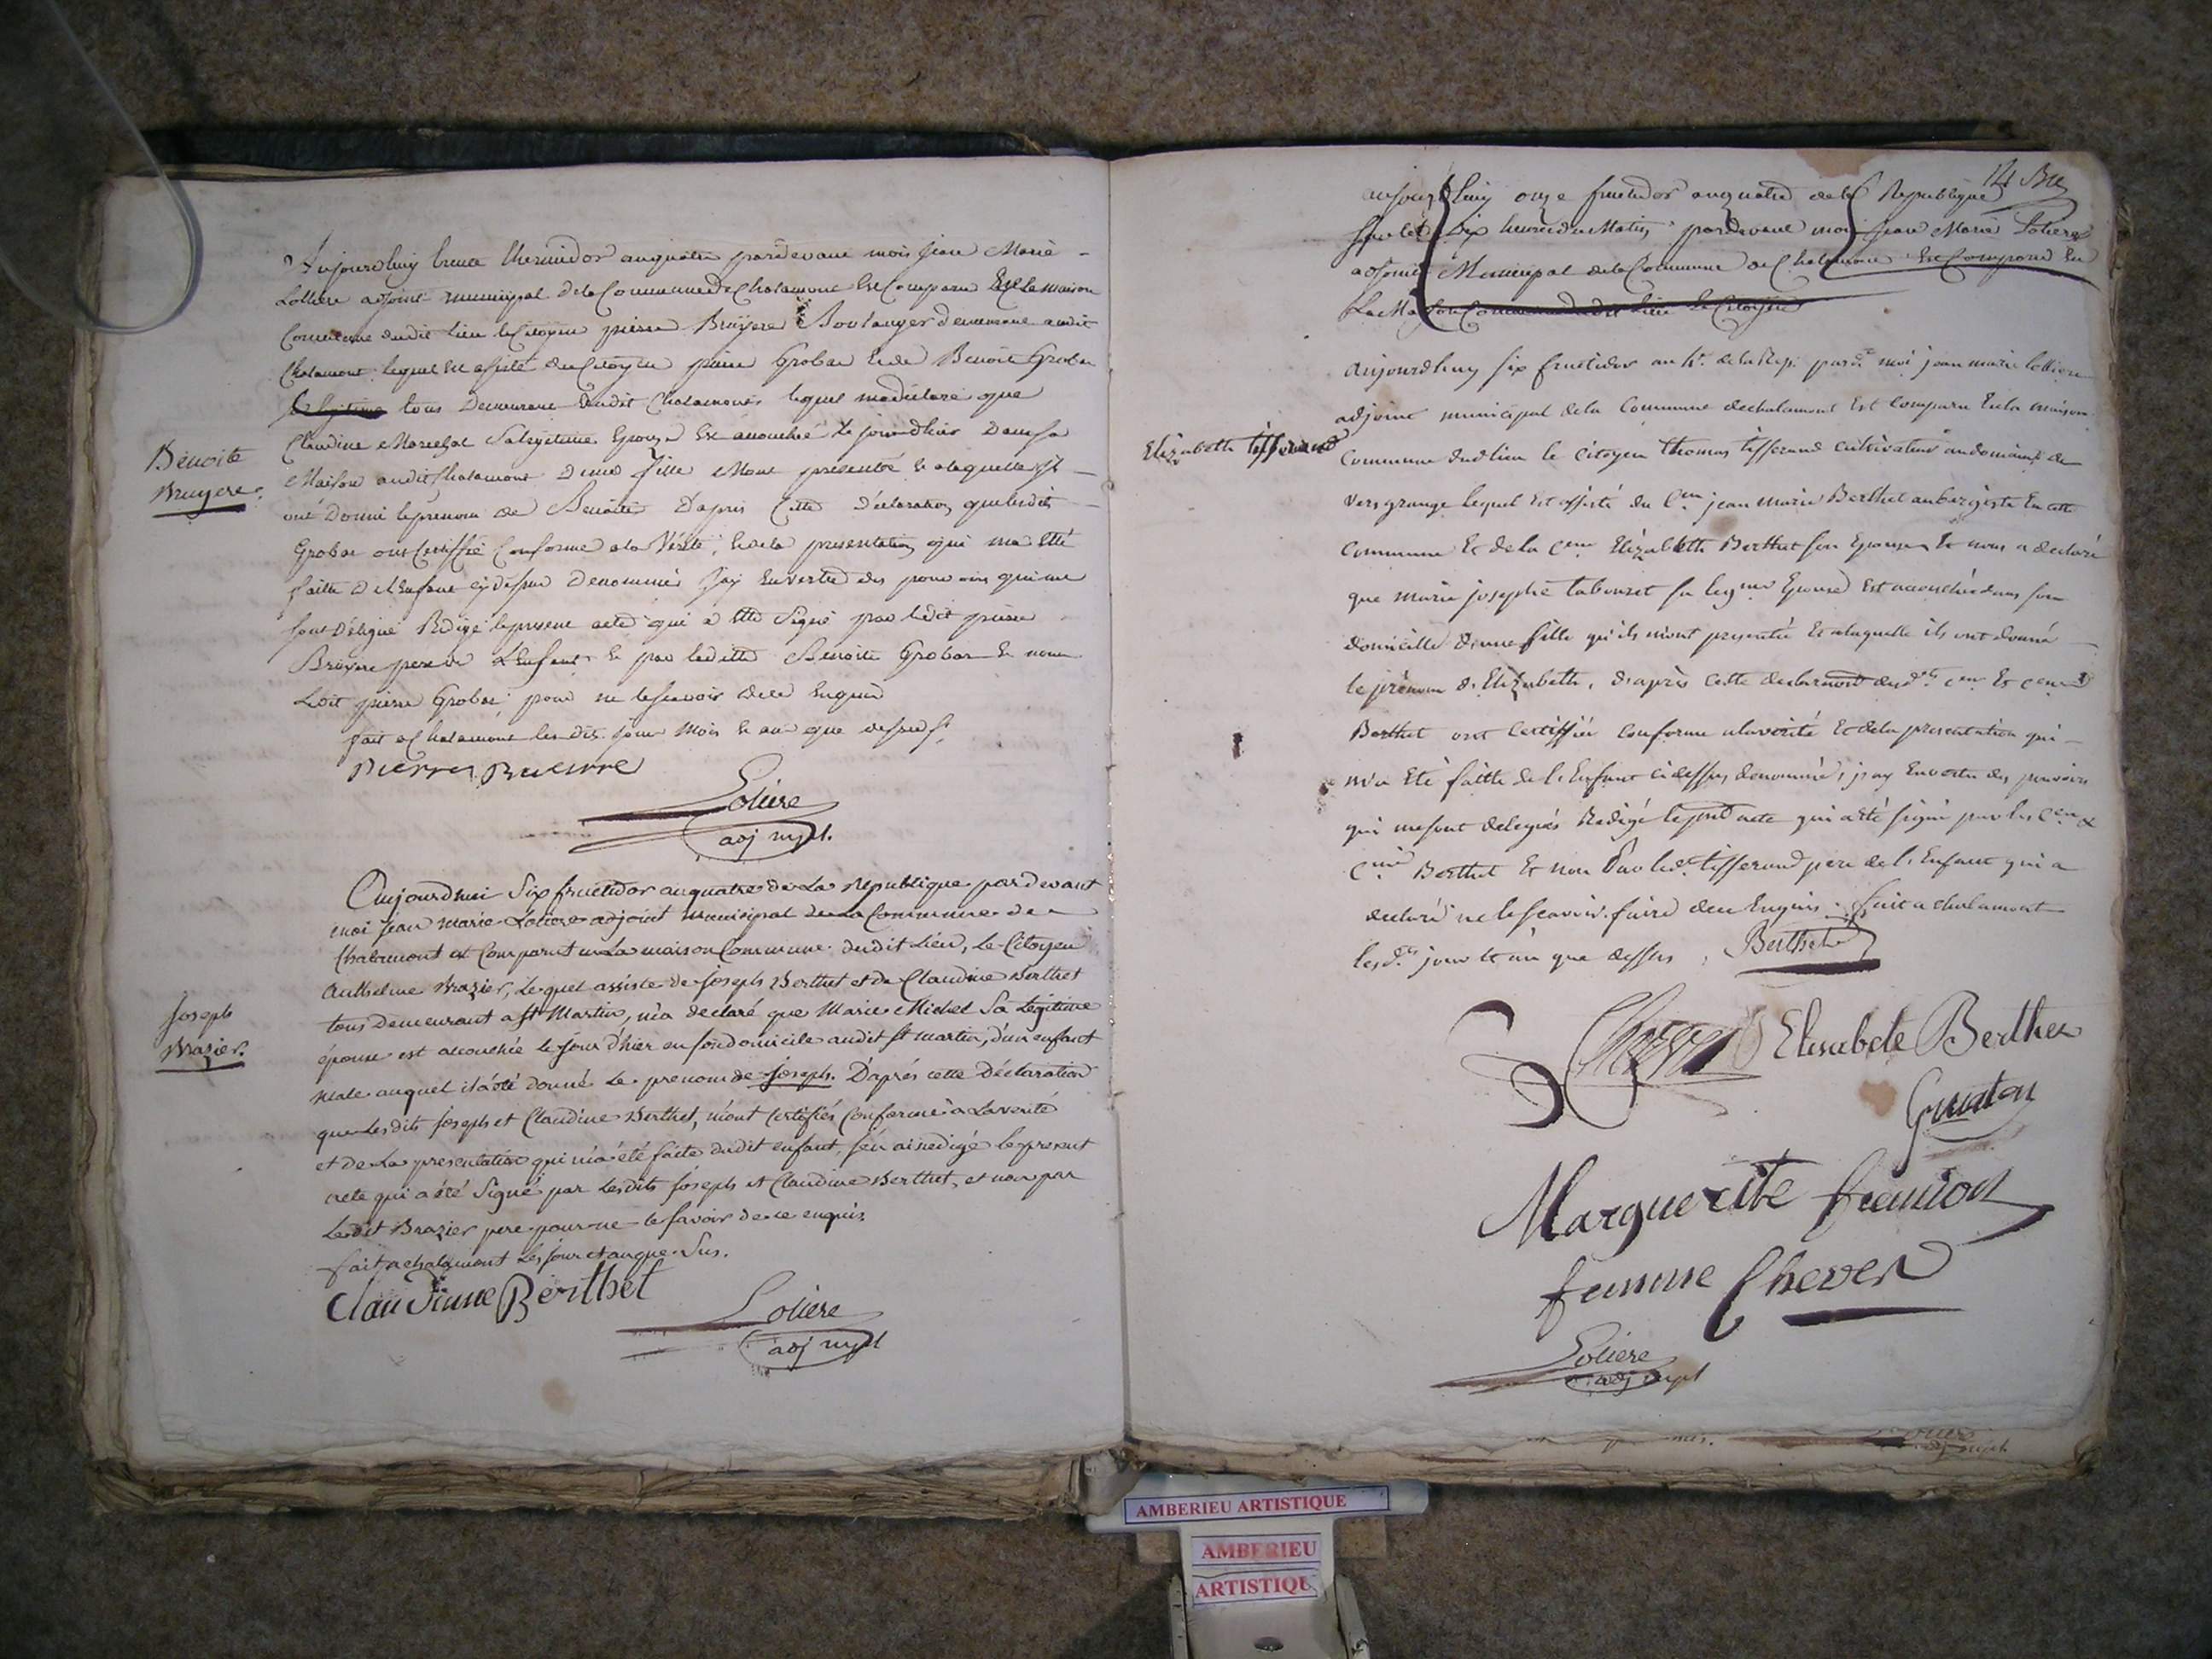 Aujourdhuy trente thermidor an quatre pardevant moi Jean Marie
Loliere adjoint municipal de la Commune de Chalamont Est Comparu En la maison
Commune dudit lieu le Citoyen pierre Bruyere Boulanger demeurant audit
Chalamont lequel est assisté du Citoyen pierre Grobas et de Benoite Grobas
tous Demeurant audit Chalamont lequel ma déclaré que
Claudine Marechal Sa legitime Epouze Est accouchée le jour dhier Dans sa
Benoite
Bruyere.
Maison audit Chalamont Dune fille Mont presentée et a laquelle ils
ont Donné le prenom de Benoite D'apres Cette Déclaration que lesdits
Grobas ont Certiffié Conforme a la Vérité, et de la presentation qui ma Eté
faitte De l'Enfant cy dessus Denommée J'ay En vertu des pouvoirs qui me
sont Délégué Redigé le present acte qui a Eté Signé par ledit pierre
Bruyere pere de L'Enfant et par laditte Benoite Grobas et non
Ledit pierre Grobas pour ne le scavoir de ce Enquis
fait a Chalamont les dits jour Mois et an que dessus
Pierre Bruierre
Loliere
adj mpl.
Aujourdhui Six fructidor an quatre de La République par devant
moi Jean Marie Loliere adjoint municipal de La Commune de
Chalamont est Comparut en La maison Commune dudit Lieu, Le Citoyen
Anthelme Brazier, Lequel assisté de Joseph Berthet et de Claudine Berthet
tous Demeurant a St Martin, m'a declaré que Marie Michel Sa Légitime
Joseph
Brazier.
épouse est accouchée le jour d'hier en son domicile audit St martin, d'un enfant
male auquel il a été donné Le prenom de Joseph. D'aprés cette Déclaration
que Les dits Joseph et Claudine Berthet, m'ont certifiés conforme a La vérité
et de La presentation qui m'a été faite dudit enfant, j'en ai redigé le present
acte qui a été Signé par Lesdits Joseph et Claudine Berthet, et non par
Ledit Brazier pere pour ne le savoir de ce enquis
fait a chalamont Les jour et an que Sus.
Claudinne Berthet
Loliere
adj mpl
14
aujourdhuy onze fructidor an quatre de la Republique
sur les dix heures du Matin pardevant moi Jean Marie Loliere
adjoint Municipal de la Commune de Chalamont Est Comparu En
La Maison Commune dudit lieu le Citoyen
Aujourdhuy six fructidor an 4e. de la Rep. pard.t moi jean marie lolliere
adjoint municipal de la Commune de chalamont Est comparu En la maison
Elizabeth tifferand
Commune dud lieu le citoyen thomas tifferand cultivateur au domaine de
vers grange lequel Est assisté du C.en jean marie Berthet aubergiste En cette
Commune Et de la C.enne Elizabeth Berthet son Epouse, Et nous a declaré
que marie josephe tabouret sa leg.me Epouse Est accouchée dans son
domicille d'une fille qu'ils m'ont presentée Et a laquelle ils ont donné
le prénom d'Elizabeth, d'après cette declaration
Berthet ont certiffiée conforme a la verité Et de la presentation qui
m'a Eté faitte de l'Enfant ci dessus denommé, j'ay En vertu des pouvoirs
qui me sont delegués Redigé le pnt acte qui a Eté signé par les C.en &
C.enne Berthet Et non Par led.t tifferand pere de l'Enfant qui a
declaré ne le scavoir faire de ce Enquis. fait a chalamont
les d.ts jour Et an que dessus. Berthet
Elisabete Berthet
Marguerite
femme Chever
Loliere
adj mpl
AMBERIEU ARTISTIQUE
AMBERIEU
ARTISTIQUE